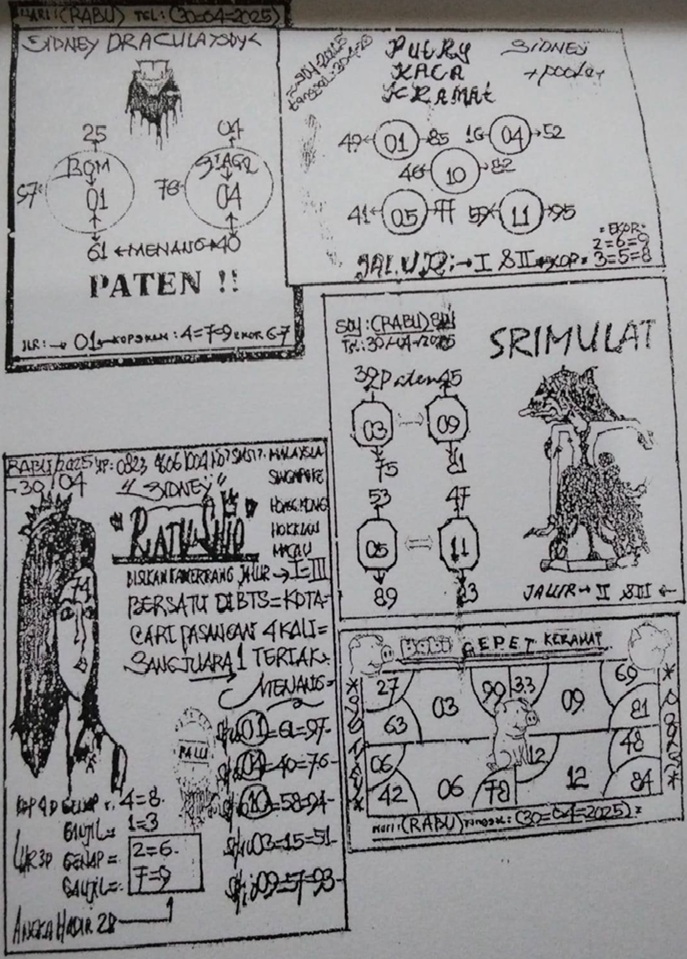 HARI:(RABU) TGL: (30=04=2025)
SIDNEY DRACULA
25 04
BOM
97 01 76 04
61 MENANG 40
PATEN !!
01 : 4=7=9 EKOR 6-7
PUTRY
KACA
KRAMAT
SIDNEY
49 01 85 16 04 52
46 10 82
41 05 77 59 11 95
JALUR: I & II KOP=
=EKOR=
2=6=9
3=5=8
SDY:(RABU)
SRIMULAT
39 Paten 45
03 09
75 81
53 47
05 11
89 83
JALUR II & III
RABU/2025 HP: 0823
30/04
"SIDNEY"
"RATU SHIO"
MALAYSIA
SINGAPORE
HONGKONG
HOKKIAN
MACAU
BISIKAN JALUR I=III
BERSATU DI BTS=KOTA=
CARI PASANGAN 4 KALI=
SANG JUARA 1 TERIAK=
MENANG=
71
PALU
01=61=97-
04=40=76-
10=58=94-
03=15=51-
09=57=93-
KOP 4D GENAP = 4=8
GANJIL= 1=3
GENAP = 2=6
GANJIL= 7=9
ANGKA HADIR 28 1
BABI NGEPET KERAMAT
27 03 99 33 09 69
63 81
06 12 48
42 06 78 12 84
*SIDNEY*
HARI:(RABU) (30=04=2025)